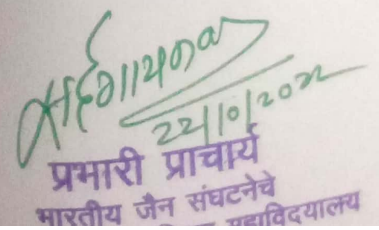 22/10/2022
प्रभारी प्राचार्य
भारतीय जैन संघटनेचे
महाविदयालय